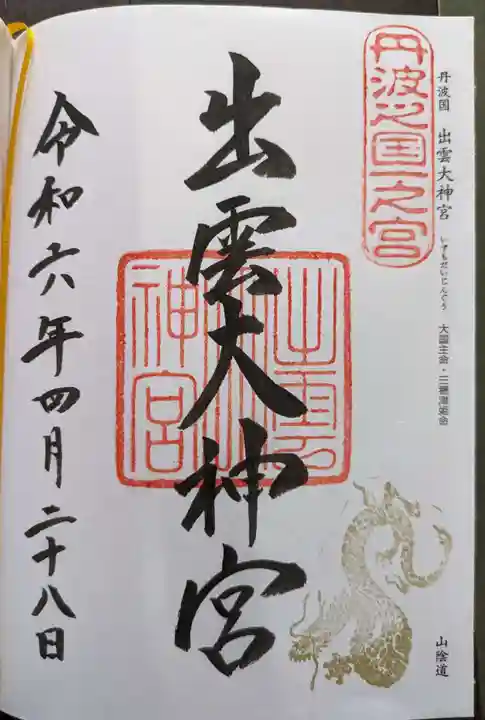 丹波国　出雲大神宮　いずもだいじんぐう　大国主命・三穂津姫命
山陰道
丹波之国一之宮
出雲大神宮
出雲大神宮
令和六年四月二十八日